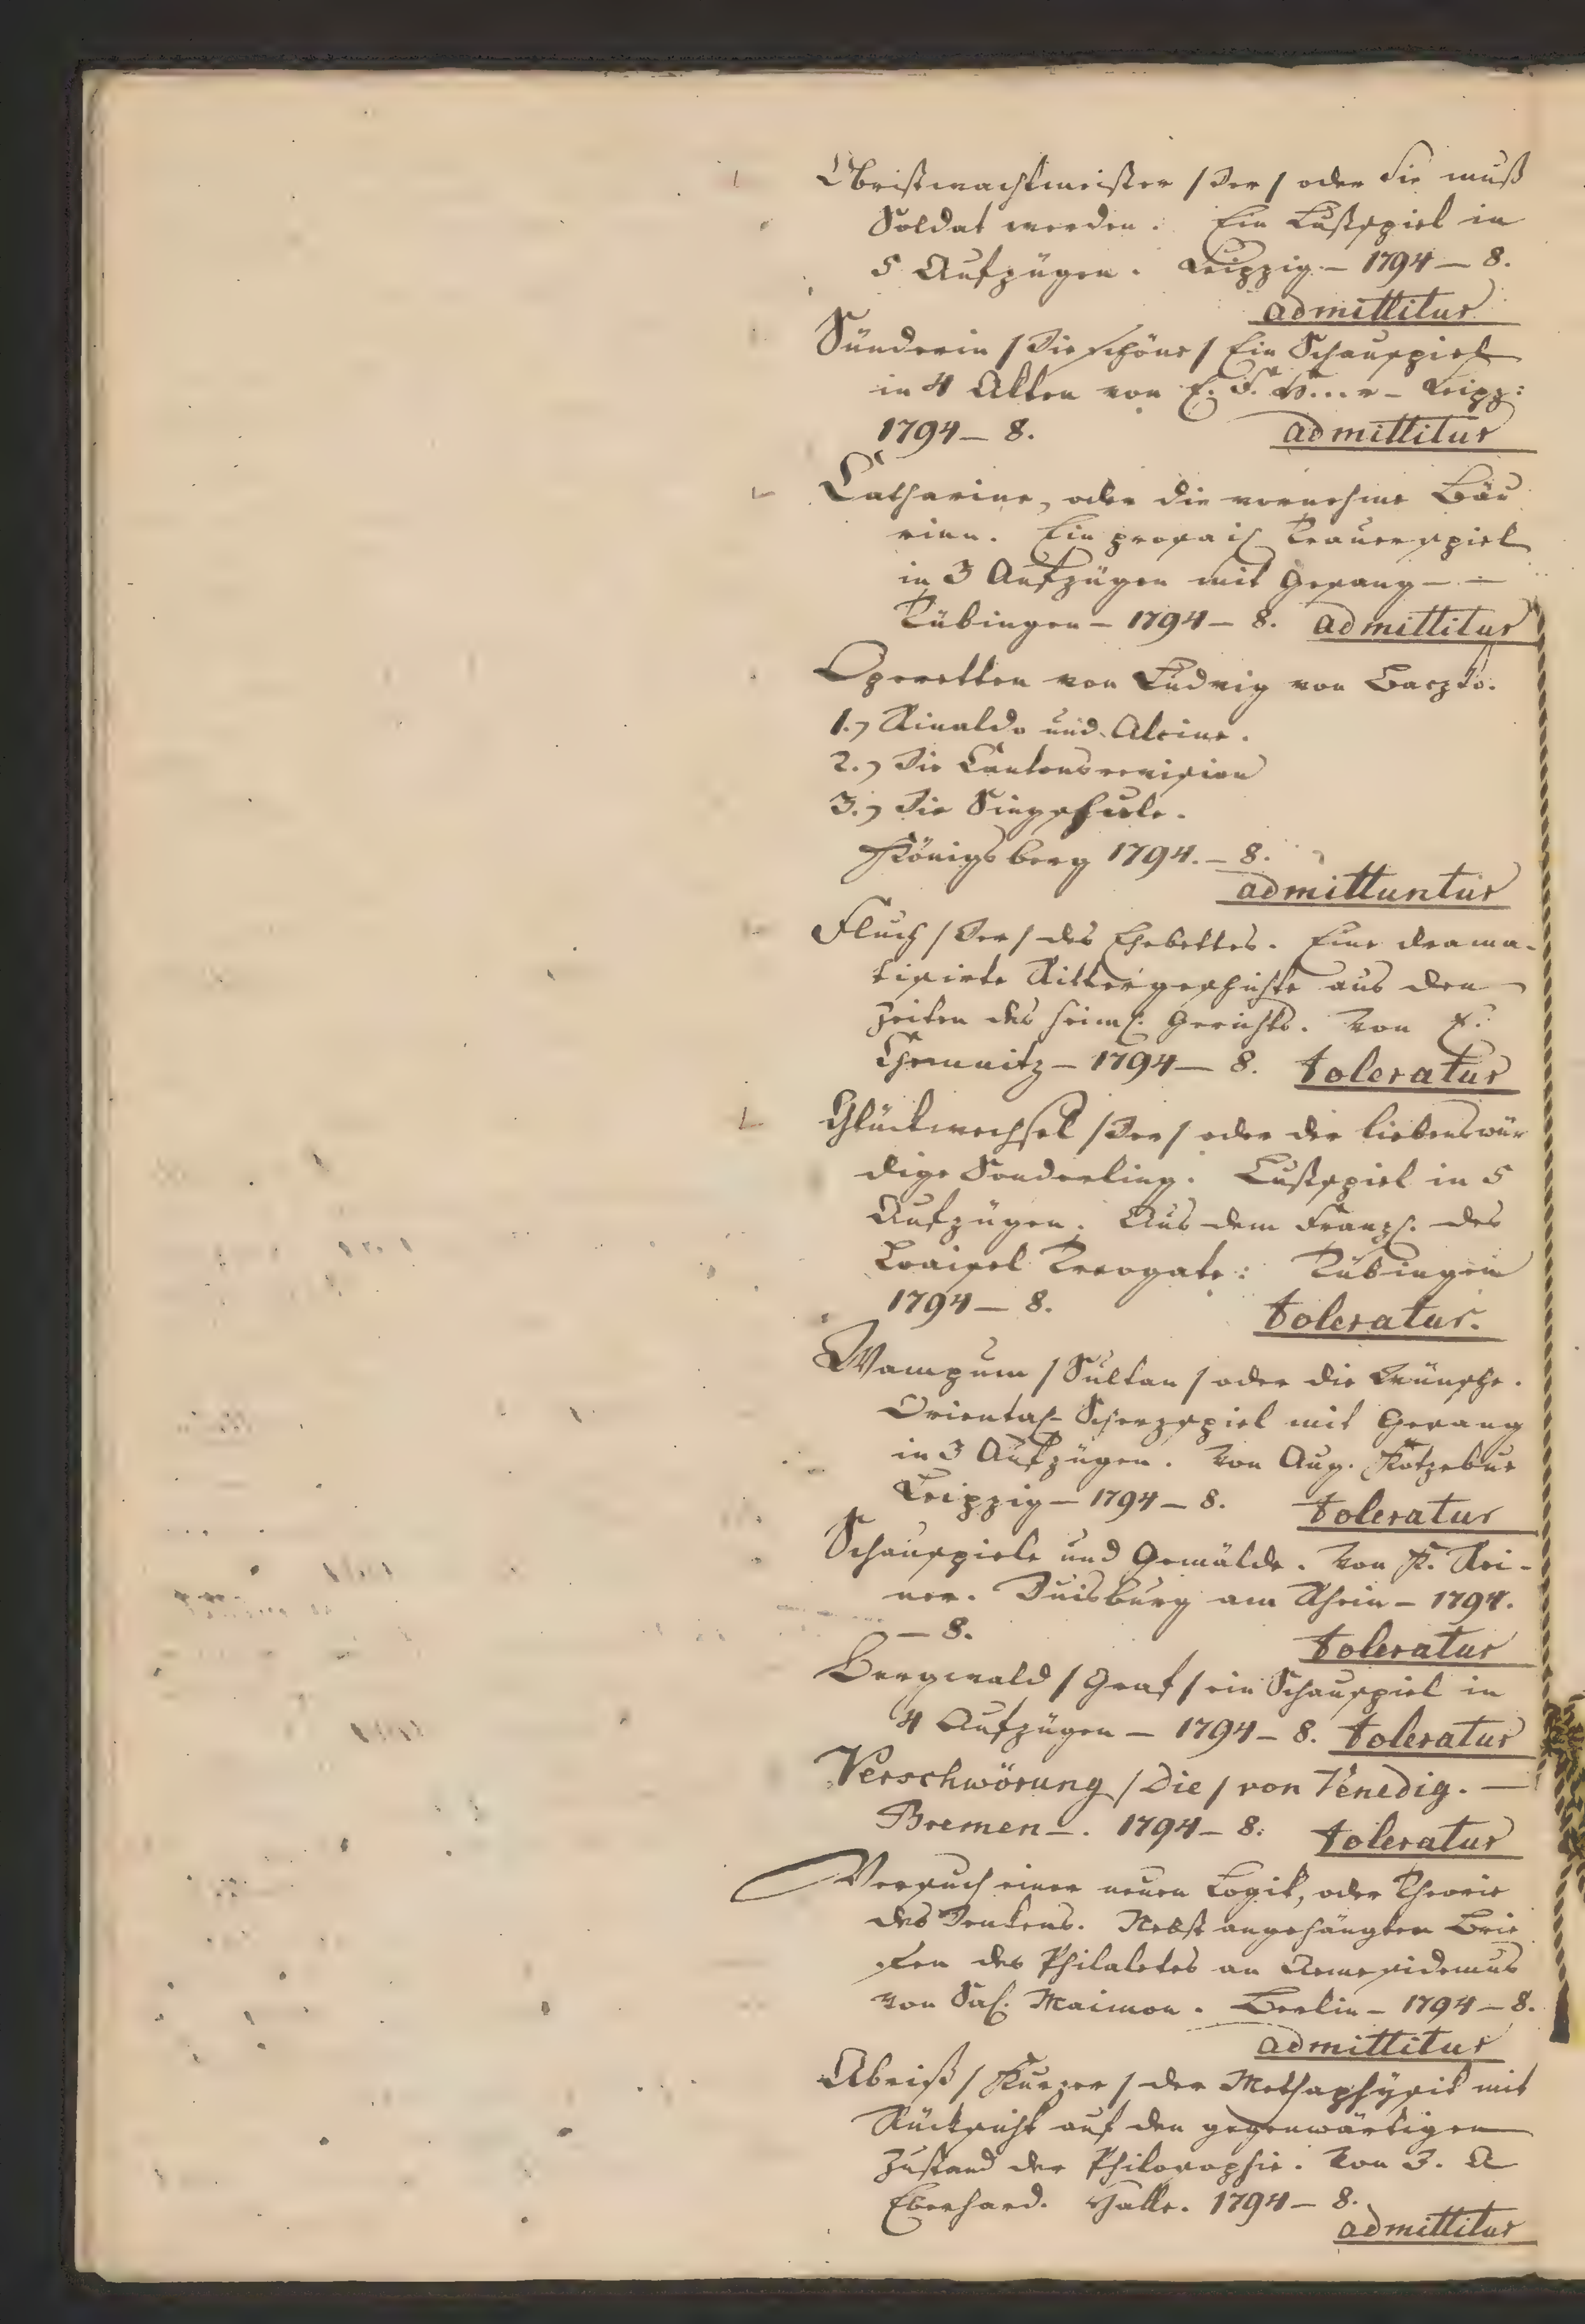 Obristwachtmeister /Der/ oder Sie muß
Soldat werden. Ein Lustspiel in
5 Aufzügen. Leipzig – 1794 – 8.
admittitur
Sünderin /Die schöne/ Ein Schauspiel
in 4 Akten von E. F. H...r – Leipz:
1794 – 8. admittitur
Catharine, oder die vornehme Bäu
rinn. Ein prosais. Trauerspiel
in 3 Aufzügen mit Gesang – –
Tübingen – 1794 – 8. admittitur
Operetten von Ludwig von Baczko.
1.) Rinaldo und Alcine.
2.) Die Cantonsrevision
3.) Die Singschule.
Königsberg 1794. – 8.
admittuntur
Fluch /Der/ des Ehebettes. Eine drama-
tisirte Rittergeschichte aus den
Zeiten des heiml. Gerichts. Von E.
Chemnitz – 1794 – 8. toleratur
Glückwechsel /Der/ oder der liebenswür
dige Sonderling. Lustspiel in 5
Aufzügen. Aus dem Franz. des
Loaisel Treogate: Tübingen
1794 – 8. toleratur.
Wampum /Sultan/ oder die Wünsche.
Oriental. Scherzspiel mit Gesang
in 3 Aufzügen. Von Aug. Kotzebue
Leipzig – 1794 – 8. toleratur
Schauspiele und Gemälde. Von K. Rei-
ner. Duisburg am Rhein – 1794.
– 8. toleratur
Bergwald /Graf/ ein Schauspiel in
4 Aufzügen – 1794 – 8. toleratur
Verschwörung /Die/ von Venedig. –
Bremen –. 1794 – 8: toleratur
Versuch einer neuen Logik, oder Theorie
des Denkens. Nebst angehängten Brie
fen des Philaletes an Aenesidemus
von Sal. Maimon. Berlin – 1794 – 8.
admittitur
Abriß /Kurzer/ der Methaphysik mit
Rücksicht auf den gegenwärtigen
Zustand der Philosophie. Von J. A
Eberhard. Halle. 1794 – 8.
admittitur